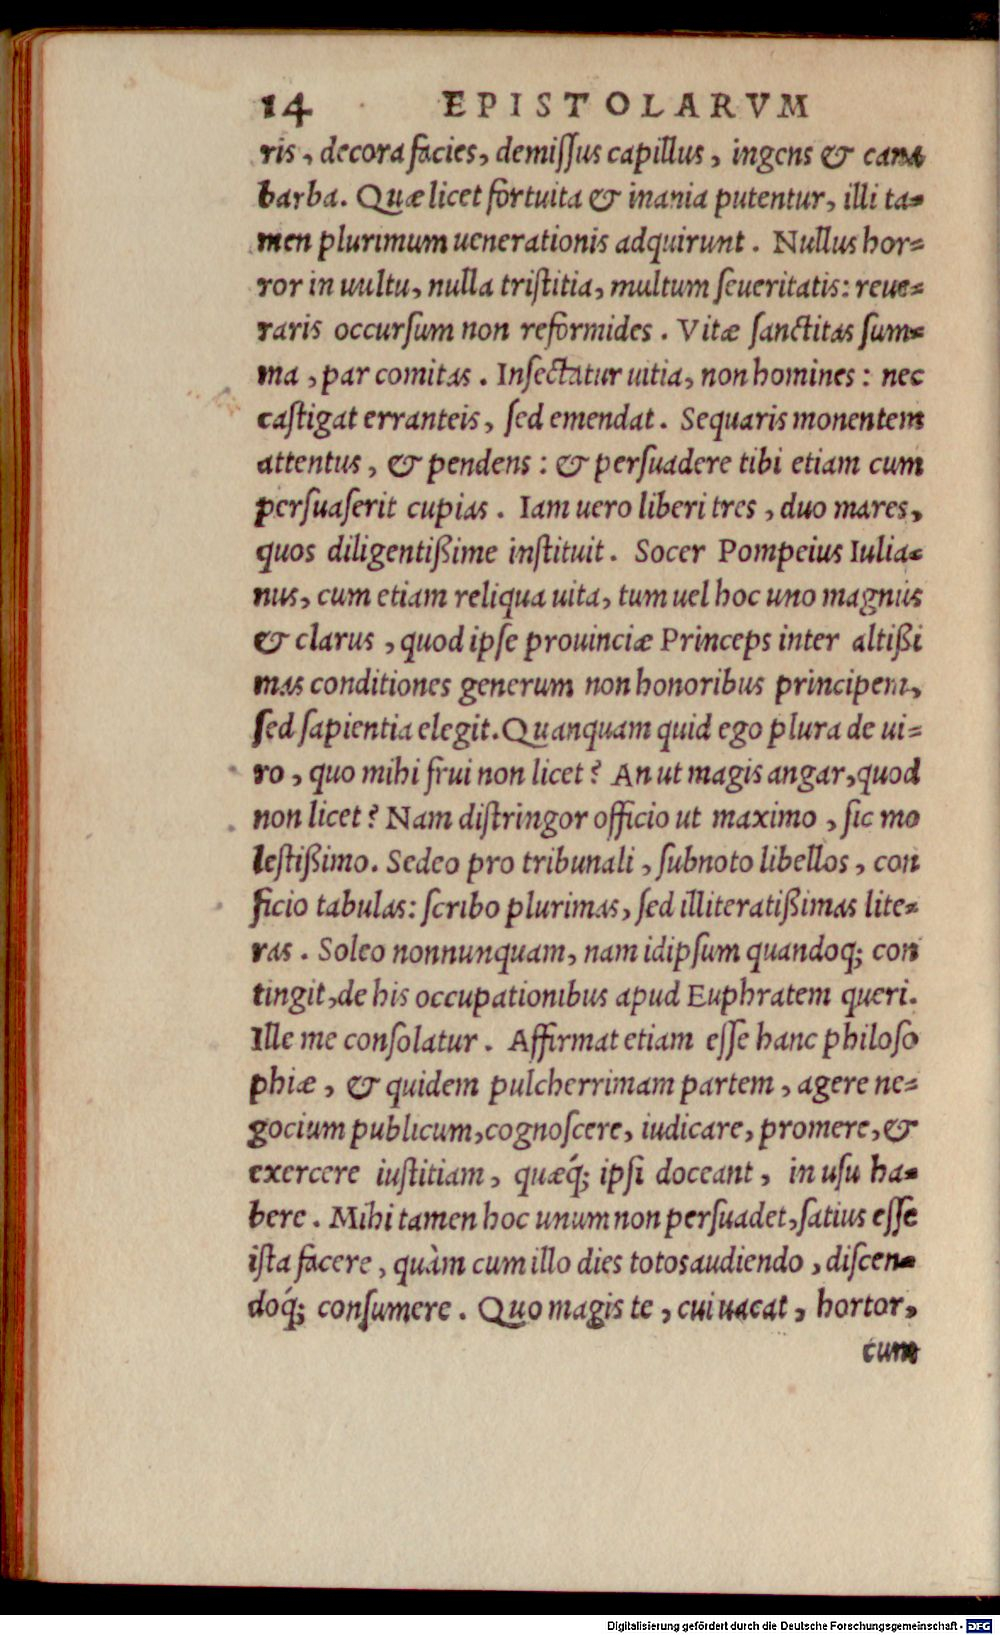 14 EPISTOLARVM
ris, decora facies, demiſſus capillus, ingens & cana
barba. Quæ licet fortuita & inania putentur, illi ta-
men plurimum uenerationis adquirunt. Nullus hor-
ror in uultu, nulla triſtitia, multum ſeueritatis: reue-
raris occurſum non reformides. Vitæ ſanctitas ſum-
ma, par comitas. Inſectatur uitia, non homines: nec
caſtigat erranteis, ſed emendat. Sequaris monentem
attentus, & pendens: & perſuadere tibi etiam cum
perſuaſerit cupias. Iam uero liberi tres, duo mares,
quos diligentißime inſtituit. Socer Pompeius Iulia-
nus, cum etiam reliqua uita, tum uel hoc uno magnus
& clarus, quod ipſe prouinciæ Princeps inter altißi
mas conditiones generum non honoribus principem,
ſed ſapientia elegit. Quanquam quid ego plura de ui-
ro, quo mihi frui non licet? An ut magis angar, quod
non licet? Nam diſtringor officio ut maximo, ſic mo
leſtißimo. Sedeo pro tribunali, ſubnoto libellos, con
ficio tabulas: ſcribo plurimas, ſed illiteratißimas lite-
ras. Soleo nonnunquam, nam idipſum quandoq; con
tingit, de his occupationibus apud Euphratem queri.
Ille me conſolatur. Affirmat etiam eſſe hanc philoſo
phiæ, & quidem pulcherrimam partem, agere ne-
gocium publicum, cognoſcere, iudicare, promere, &
exercere iuſtitiam, quæq́; ipſi doceant, in uſu ha-
bere. Mihi tamen hoc unum non perſuadet, ſatius eſſe
iſta facere, quàm cum illo dies totos audiendo, diſcen-
doq́; conſumere. Quo magis te, cui uacat, hortor,
cum
Digitalisierung gefördert durch die Deutsche Forschungsgemeinschaft - DFG